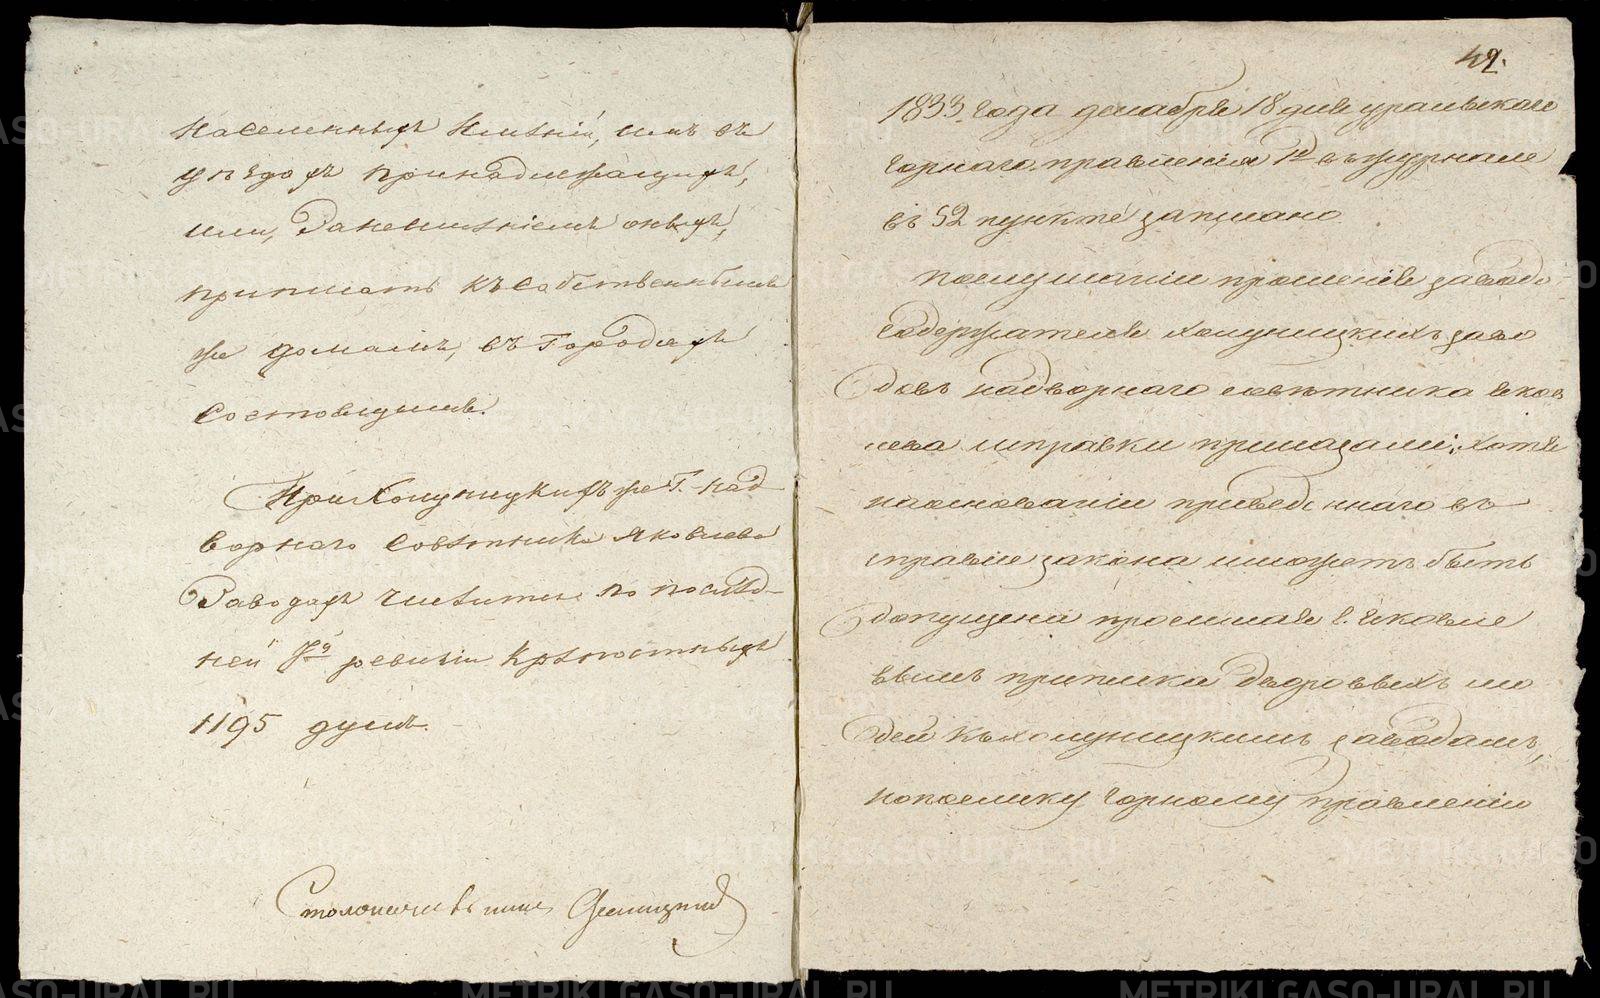 населенныхъ имѣній, имъ въ
уѣздахъ принадлежащихъ,
или, за неимѣніемъ оныхъ,
приписать къ собственнымъ
же домамъ, въ городахъ
состоящимъ.
При Холуницкихъ же Г. над
ворнаго совѣтника Яковлева
заводахъ числится по послѣд-
ней 7й ревизіи крѣпостныхъ
1195 душъ.
Столоначальникъ
42.
1833 года декабря 18 дня уральскаго
горнаго правленія въ журнале
въ 52 пункте записано
послушаніи прошенія заводо
содержателя холуницкихъ заво
довъ надворнаго советника яков
лева исправки приказали: хотя
наоснованіи приведеннаго въ
справке закона иможетъ быть
допущена просимая г. яковле
вымъ приписка дворовыхъ лю
дей къ холуницкимъ заводамъ,
нопоелику горному правленію
METRIKI.GASO-URAL.RU